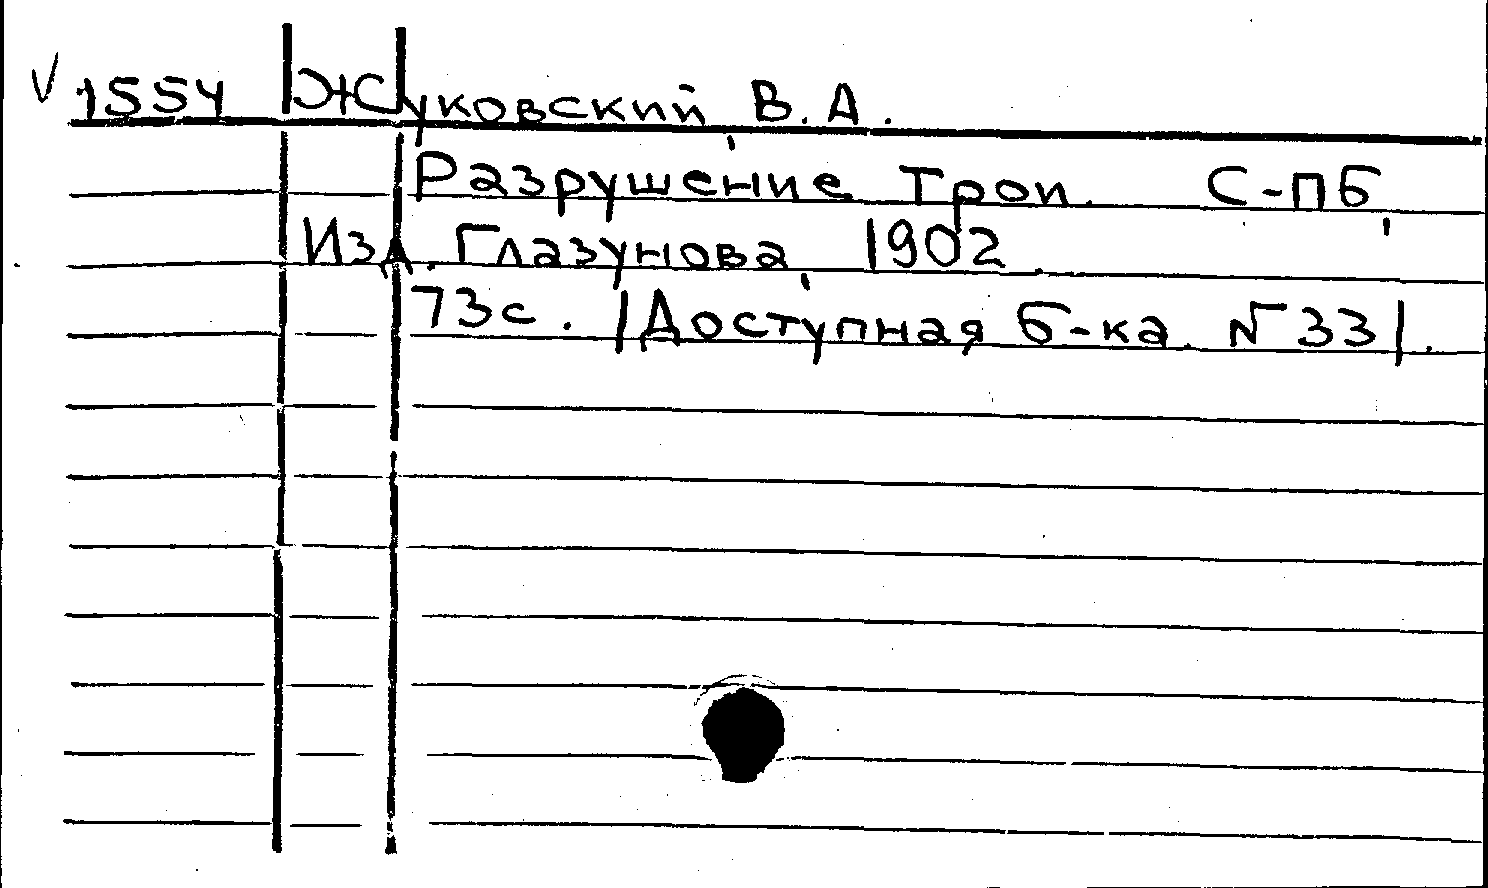 √ 1554 Жуковский, В. А.
Разрушение Трои. С-ПБ,
Изд. Глазунова, 1902
73с. /Доступная б-ка. № 33/.